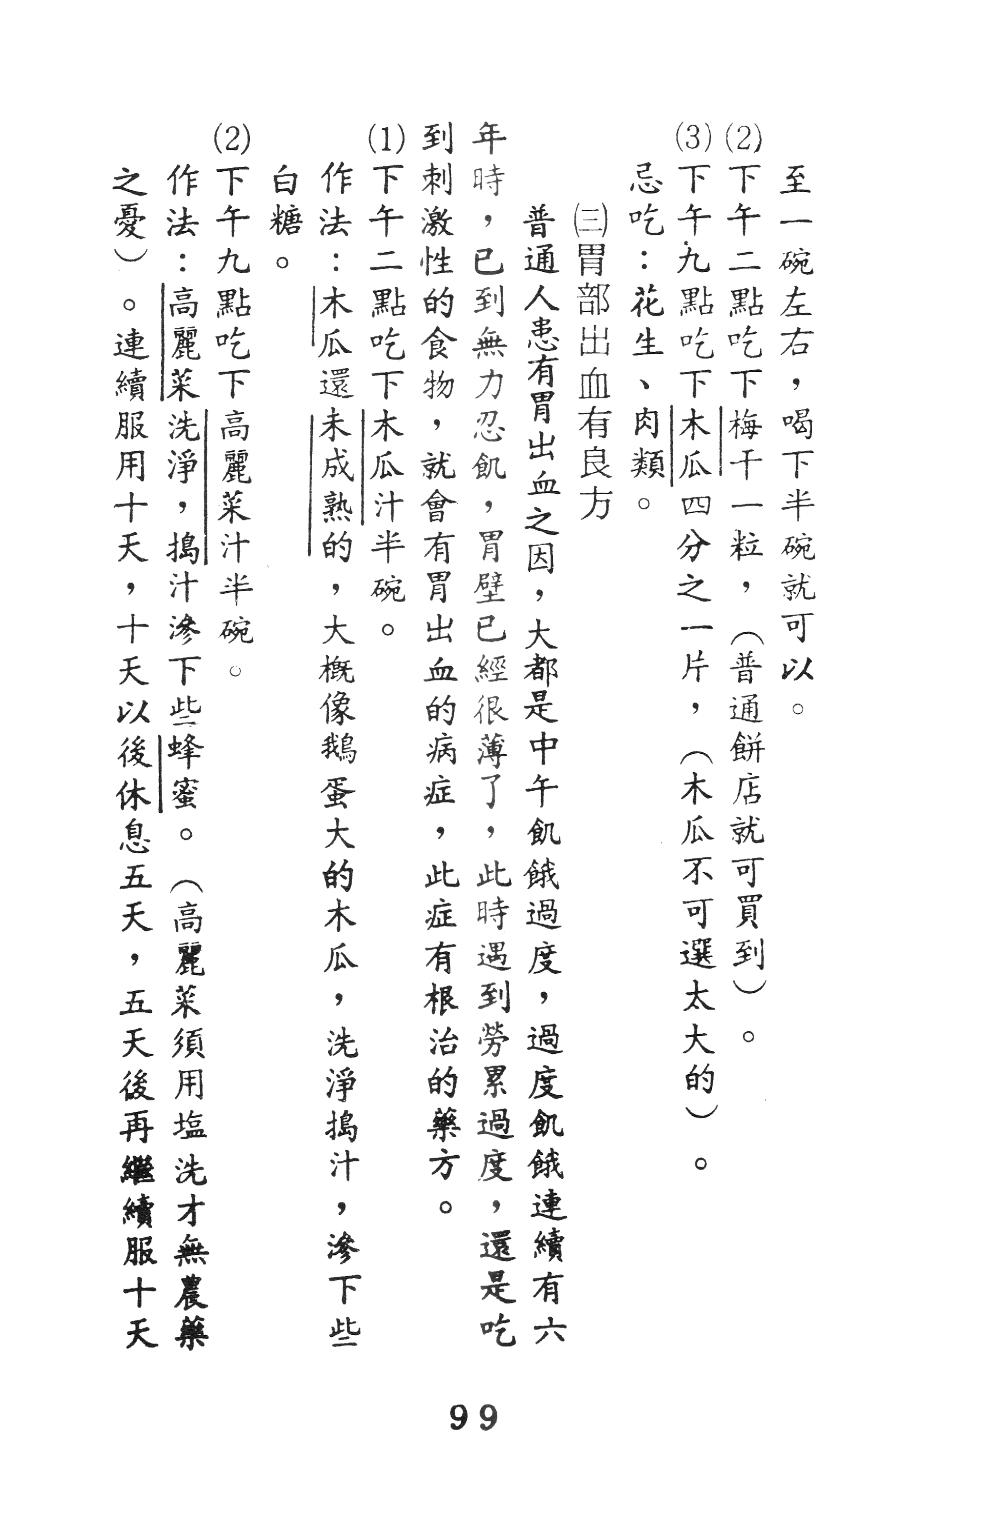 至一碗左右，喝下半碗就可以。
(2)下午二點吃下梅干一粒，（普通餅店就可買到）。
(3)下午九點吃下木瓜四分之一片，（木瓜不可選太大的）。
忌吃：花生、肉類。
㈢胃部出血有良方
普通人患有胃出血之因，大都是中午飢餓過度，過度飢餓連續有六
年時，已到無力忍飢，胃壁已經很薄了，此時遇到勞累過度，還是吃
到刺激性的食物，就會有胃出血的病症，此症有根治的藥方。
(1)下午二點吃下木瓜汁半碗。
作法：木瓜還未成熟的，大概像鵝蛋大的木瓜，洗淨搗汁，滲下些
白糖。
(2)下午九點吃下高麗菜汁半碗。
作法：高麗菜洗淨，搗汁滲下些蜂蜜。（高麗菜須用塩洗才無農藥
之憂）。連續服用十天，十天以後休息五天，五天後再繼續服十天
99